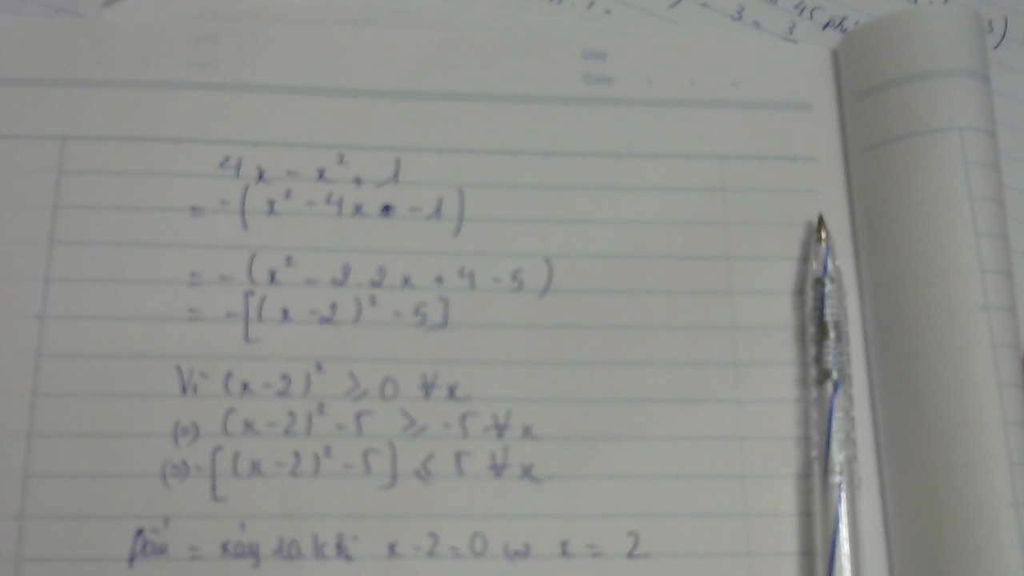 45
3 = 3
4x - x² + 1
= -(x² - 4x - 1)
= -(x² - 2.2x + 4 - 5)
= -[(x - 2)² - 5]
Vì (x-2)² ≥ 0 ∀x
(=) (x-2)² - 5 ≥ -5 ∀x
(=) -[(x-2)² - 5] ≤ 5 ∀x
Dấu = xảy ra khi x - 2 = 0 (=) x = 2